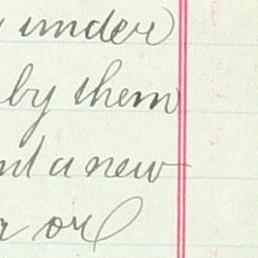 under
by them
a new
or